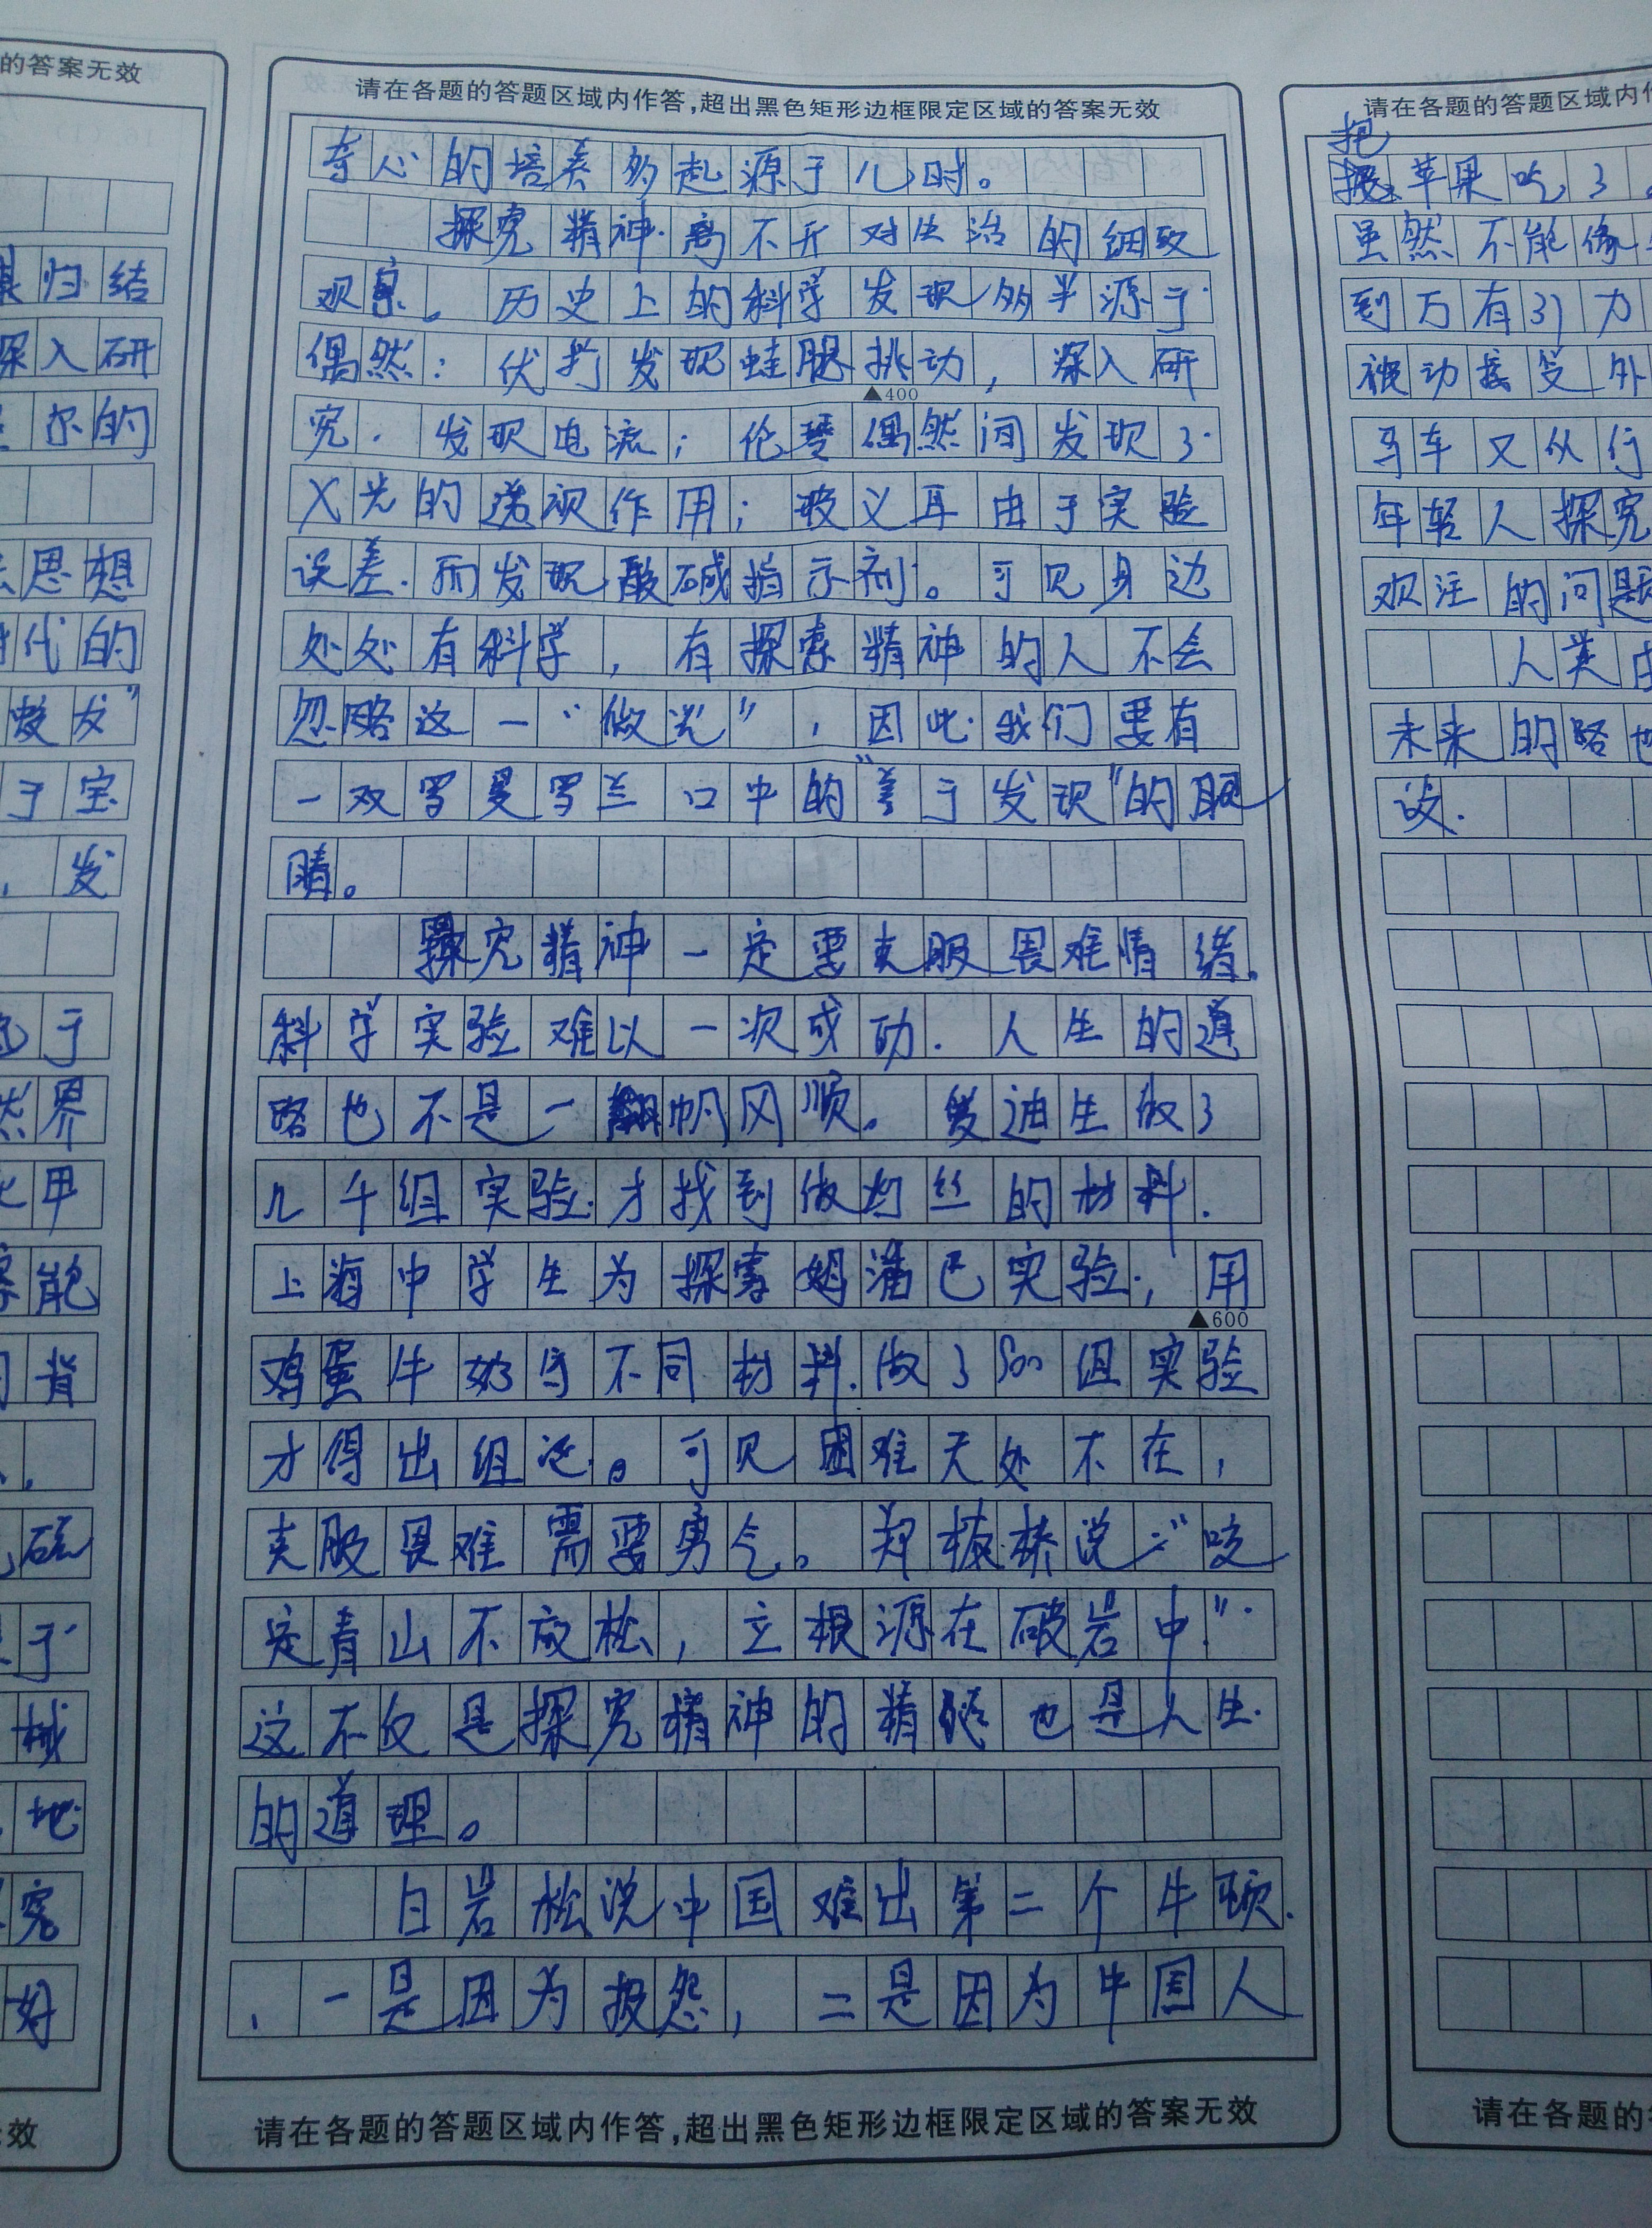 的答案无效
归结
深入研
尔的
思想
代的
于宝
，发
于
界
甲
能
背
于
械
地
究
好
效
请在各题的答题区域内作答,超出黑色矩形边框限定区域的答案无效
奇心的培养多起源于儿时。
探究精神离不开对生活的细致
观察。历史上的科学发现多半源于
偶然：伏打发现蛙腿挑动，深入研
▲400
究.发现电流；伦琴偶然间发现了
X光的透视作用；玻义耳由于实验
误差.而发现酸碱指示剂。可见身边
处处有科学，有探索精神的人不会
忽略这一“微光”，因此我们要有
一双罗曼罗兰口中的“善于发现”的眼
睛。
探究精神一定要克服畏难情绪。
科学实验难以一次成功.人生的道
路也不是一帆风顺。爱迪生做了
几千组实验.才找到做灯丝的材料.
上海中学生为探索姆潘巴实验，用
▲600
鸡蛋牛奶等不同材料.做了500组实验
才得出组论。可见困难无处不在，
克服畏难需要勇气。郑板桥说：“咬
定青山不放松，立根源在破岩中.”
这不仅是探究精神的精髓也是人生
的道理。
白岩松说中国难出第二个牛顿.
，一是因为报怨，二是因为中国人
请在各题的答题区域内作答,超出黑色矩形边框限定区域的答案无效
请在各题的答题区域内作
把
苹果吃了
虽然不能像
到万有引力
被动接受外
马车又从行
年轻人探究
欢注的问题
人类
未来的路也
谈.
请在各题的答